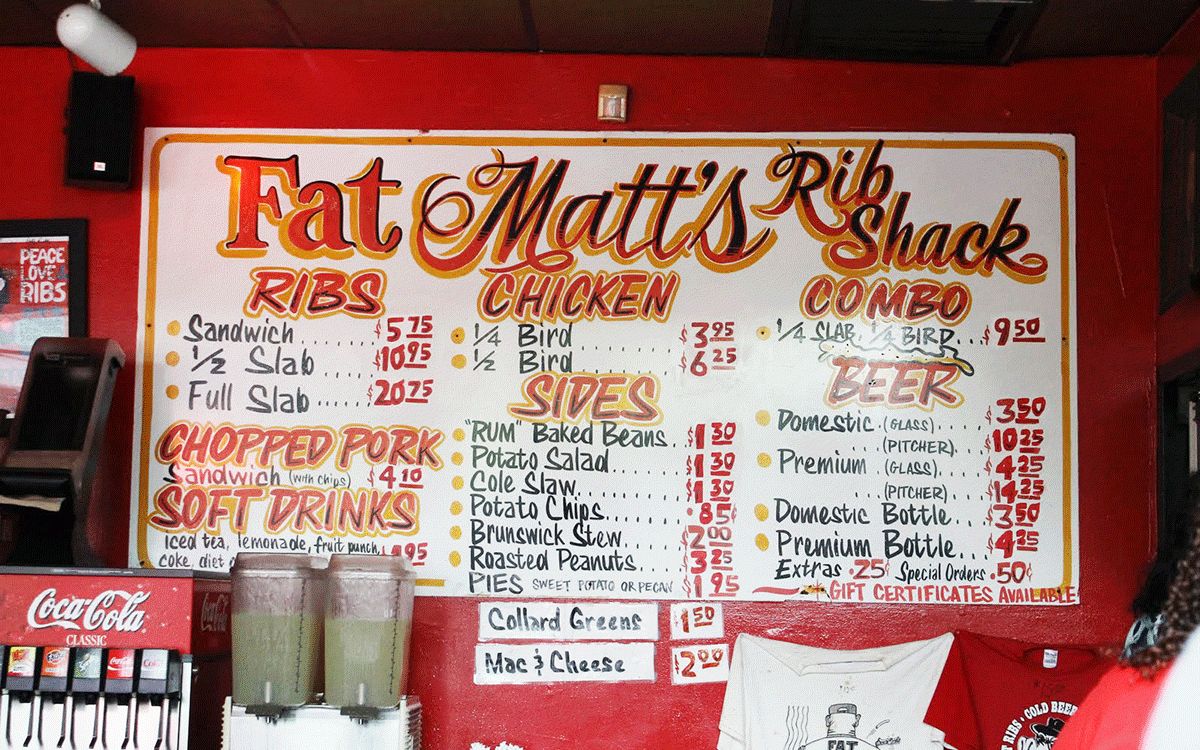 Fat Matt's Rib Shack
RIBS
Sandwich ..... $5 75
1/2 Slab ..... $10 95
Full Slab ...... $20 75
CHOPPED PORK
Sandwich (with chips) $4 10
SOFT DRINKS
Iced tea, lemonade, fruit punch,
coke, diet
95
CHICKEN
1/4 Bird ........ $3 95
1/2 Bird ........ $6 25
SIDES
"RUM" Baked Beans .. $1 30
Potato Salad ....... $1 30
Cole Slaw ......... $1 30
Potato Chips ....... .85¢
Brunswick Stew ..... $2 00
Roasted Peanuts .... $3 25
PIES SWEET POTATO OR PECAN $1 95
Collard Greens $1 50
Mac & Cheese $2 00
COMBO
1/4 SLAB, 1/4 BIRD ... $9 50
BEER
Domestic . (GLASS) .... $3 50
. (PITCHER) ... $10 25
Premium . (GLASS) .... $4 25
... (PITCHER) ... $14 25
Domestic Bottle ... $3 50
Premium Bottle ... $4 25
Extras .25¢ Special Orders .50¢
GIFT CERTIFICATES AVAILABLE
PEACE
LOVE
RIBS
Coca-Cola
CLASSIC
FAT
RIBS • COLD BEER